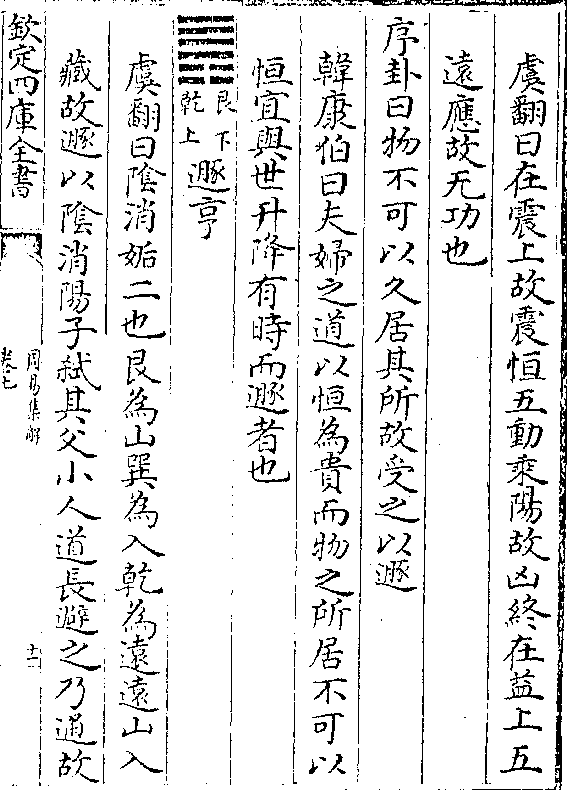 虞翻曰在震上故震恒五動乘陽故凶終在益上五
遠應故无功也
序卦曰物不可以久居其所故受之以遯
韓康伯曰夫婦之道以恒為貴而物之所居不可以
恒宜與世升降有時而遯者也
艮下
乾上
遯亨
虞翻曰陰消姤二也艮為山巽為入乾為遠遠山入
藏故遯以陰消陽子弑其父小人道長避之乃通故
欽定四庫全書
周易集解
卷七
十一